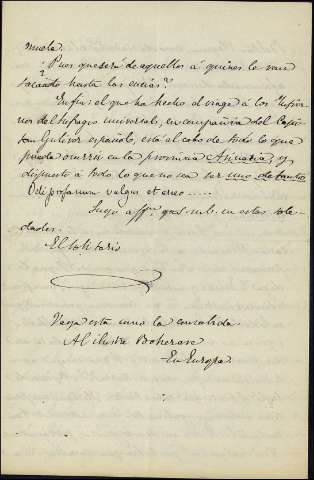 muela.
¿Pues que será de aquellos a quienes le van
sacando hasta las encias?
En fin: el que ha hecho el viage a los Infier-
nos del sufragio universal, en compañia del Capi-
tan Guliver español, está al cabo de todo lo que
pueda ocurrir en la provincia y
dispuesto a todo lo que no sea ser uno de tantos
Odi profanum vulgus et arceo......
Suyo affmo. q. s. m. b. en estas sole-
dades.
El Solitario
Vaya esta como la consabida
Al ilustre Boheran
En Europa